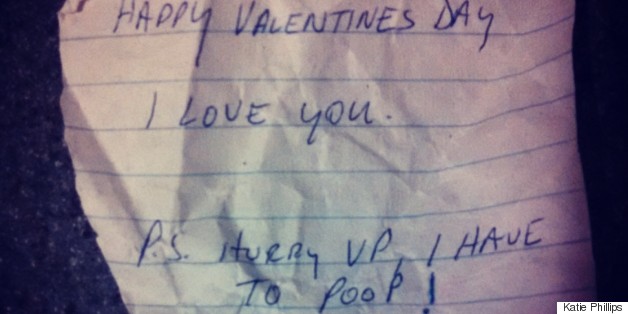 HAPPY VALENTINES DAY
I LOVE YOU.
P.S. HURRY UP, I HAVE
TO POOP!
Katie Phillips